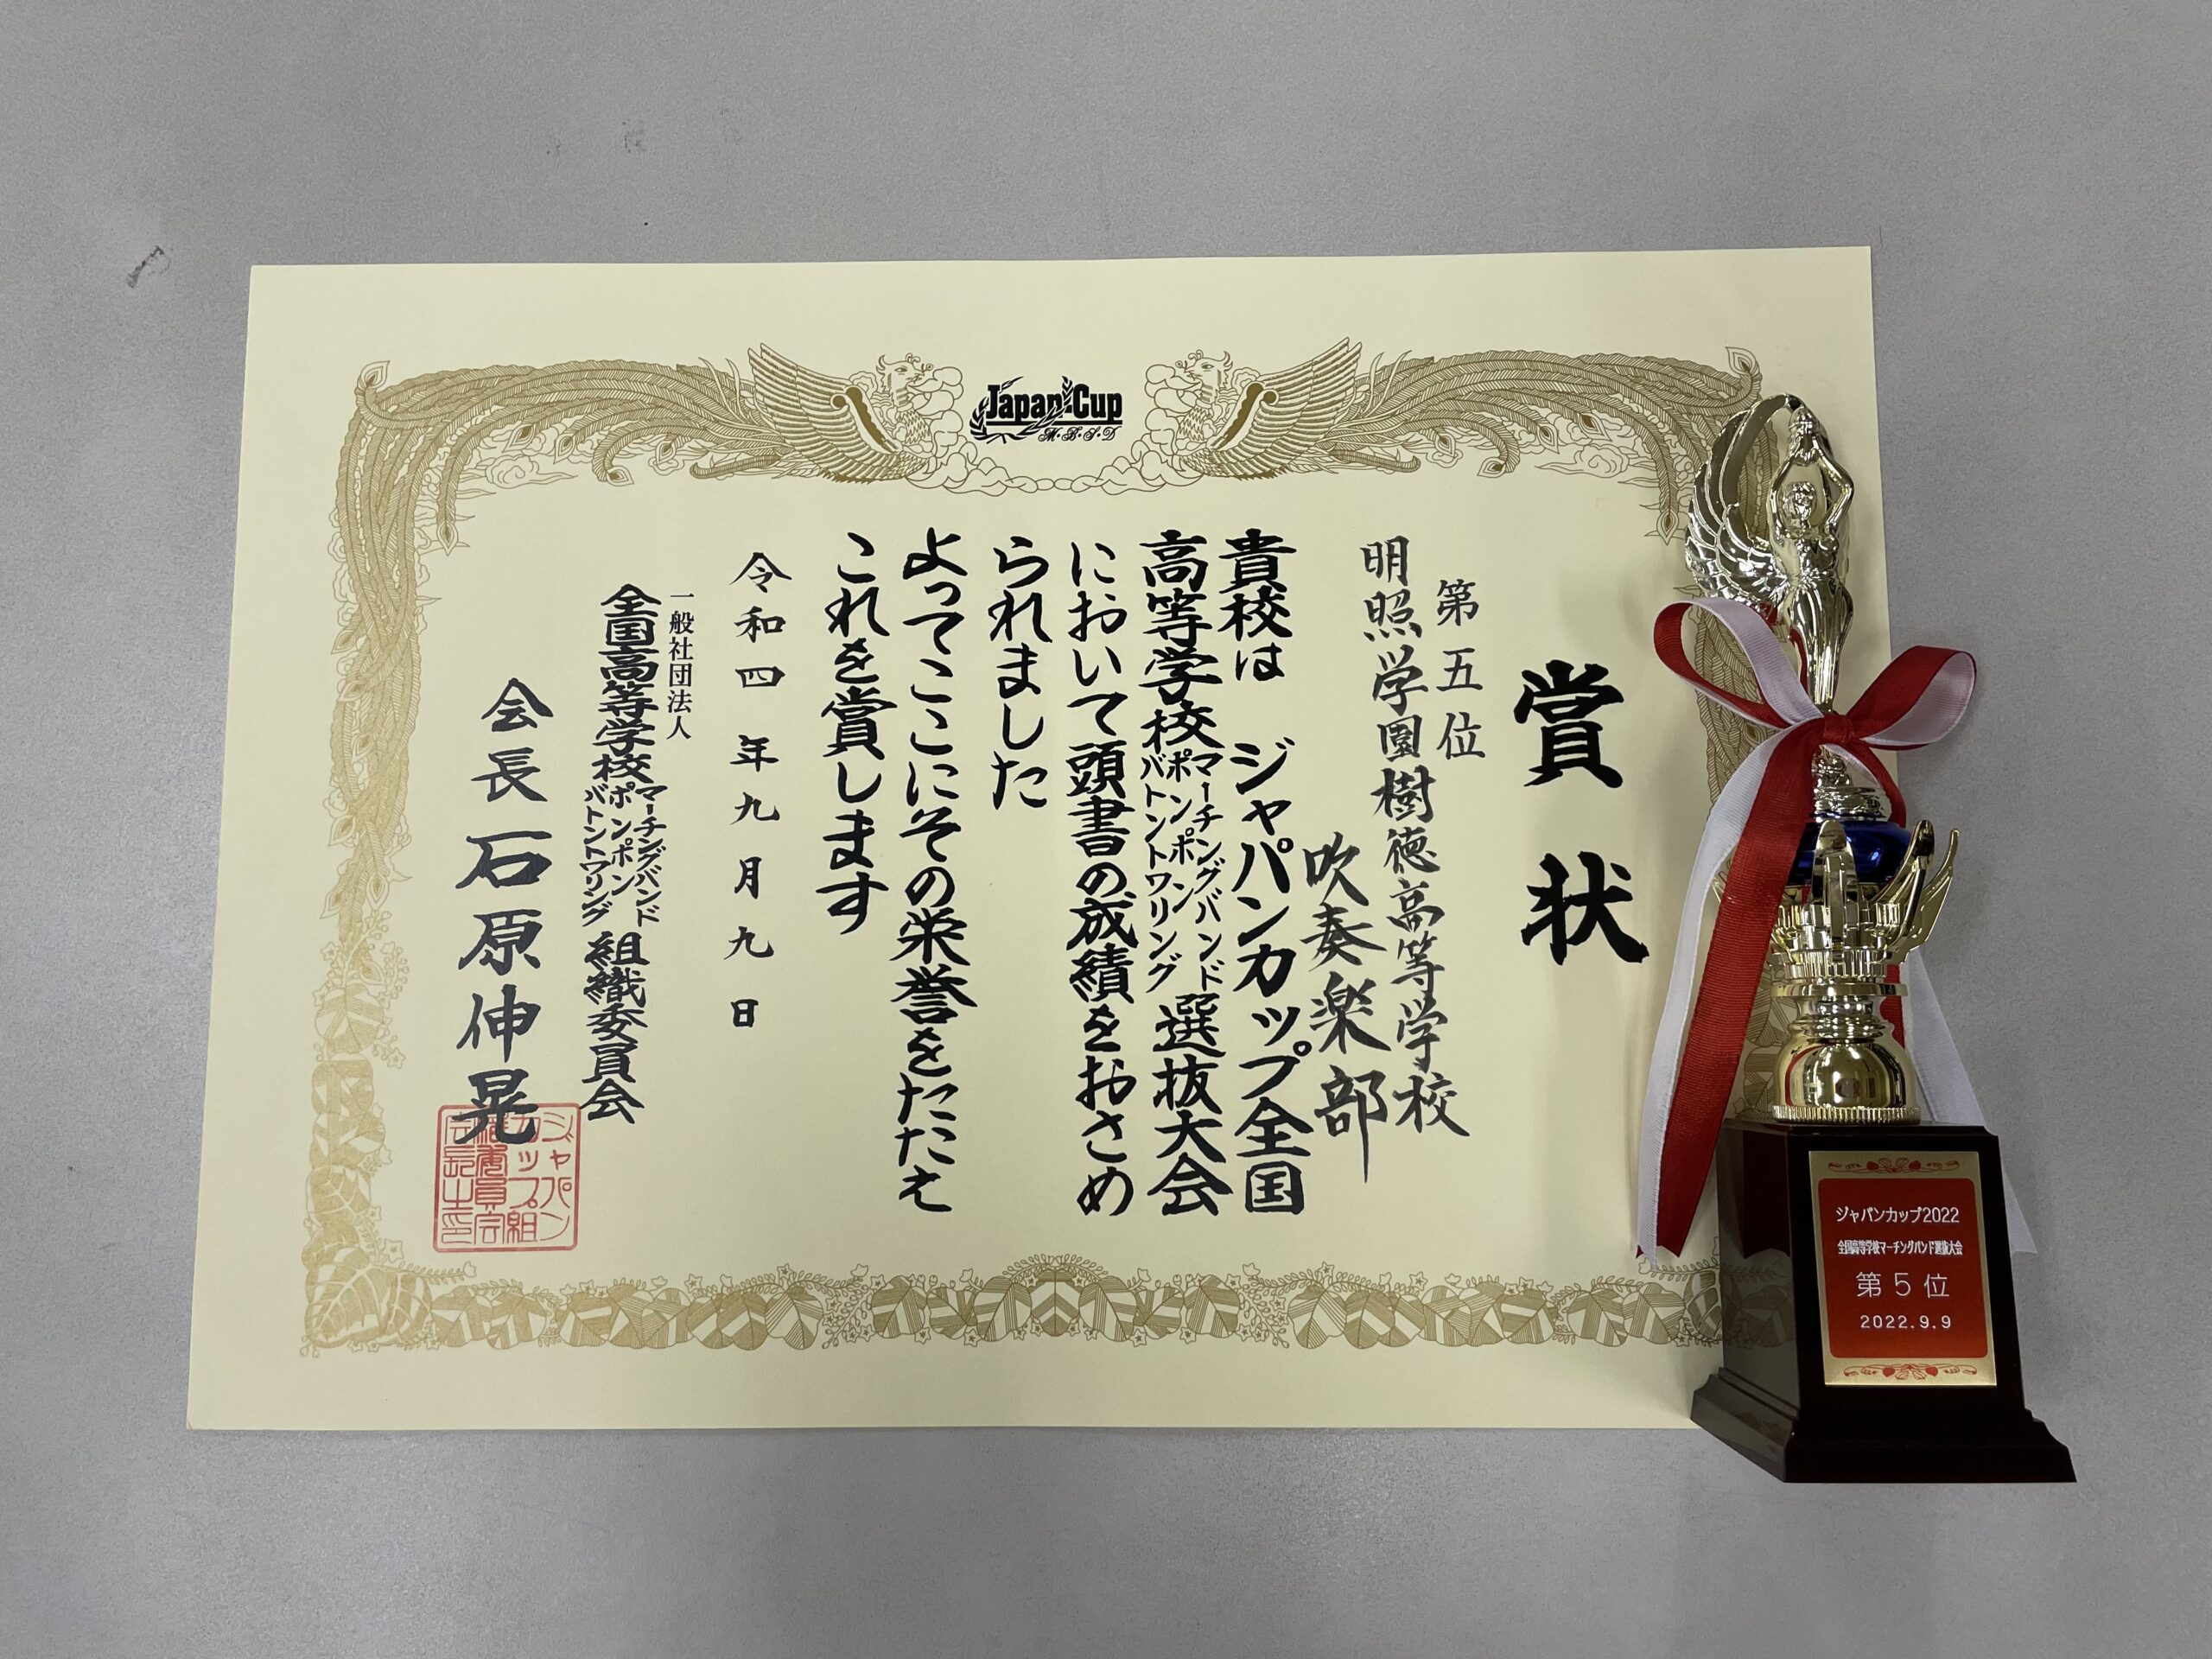 Japan Cup
M・B・S・D
賞状
第五位
明照学園樹徳高等学校
吹奏楽部
貴校は ジャパンカップ全国
高等学校
マーチングバンド
ポンポン
バトントワリング
選抜大会
において頭書の成績をおさめ
られました
よってここにその栄誉をたたえ
これを賞します
令和四年九月九日
一般社団法人
全国高等学校
マーチングバンド
ポンポン
バトントワリング
組織委員会
会長 石原伸晃
ジャパン
カップ組
織委員会
会長之印
ジャパンカップ2022
全国高等学校マーチングバンド選抜大会
第5位
2022.9.9